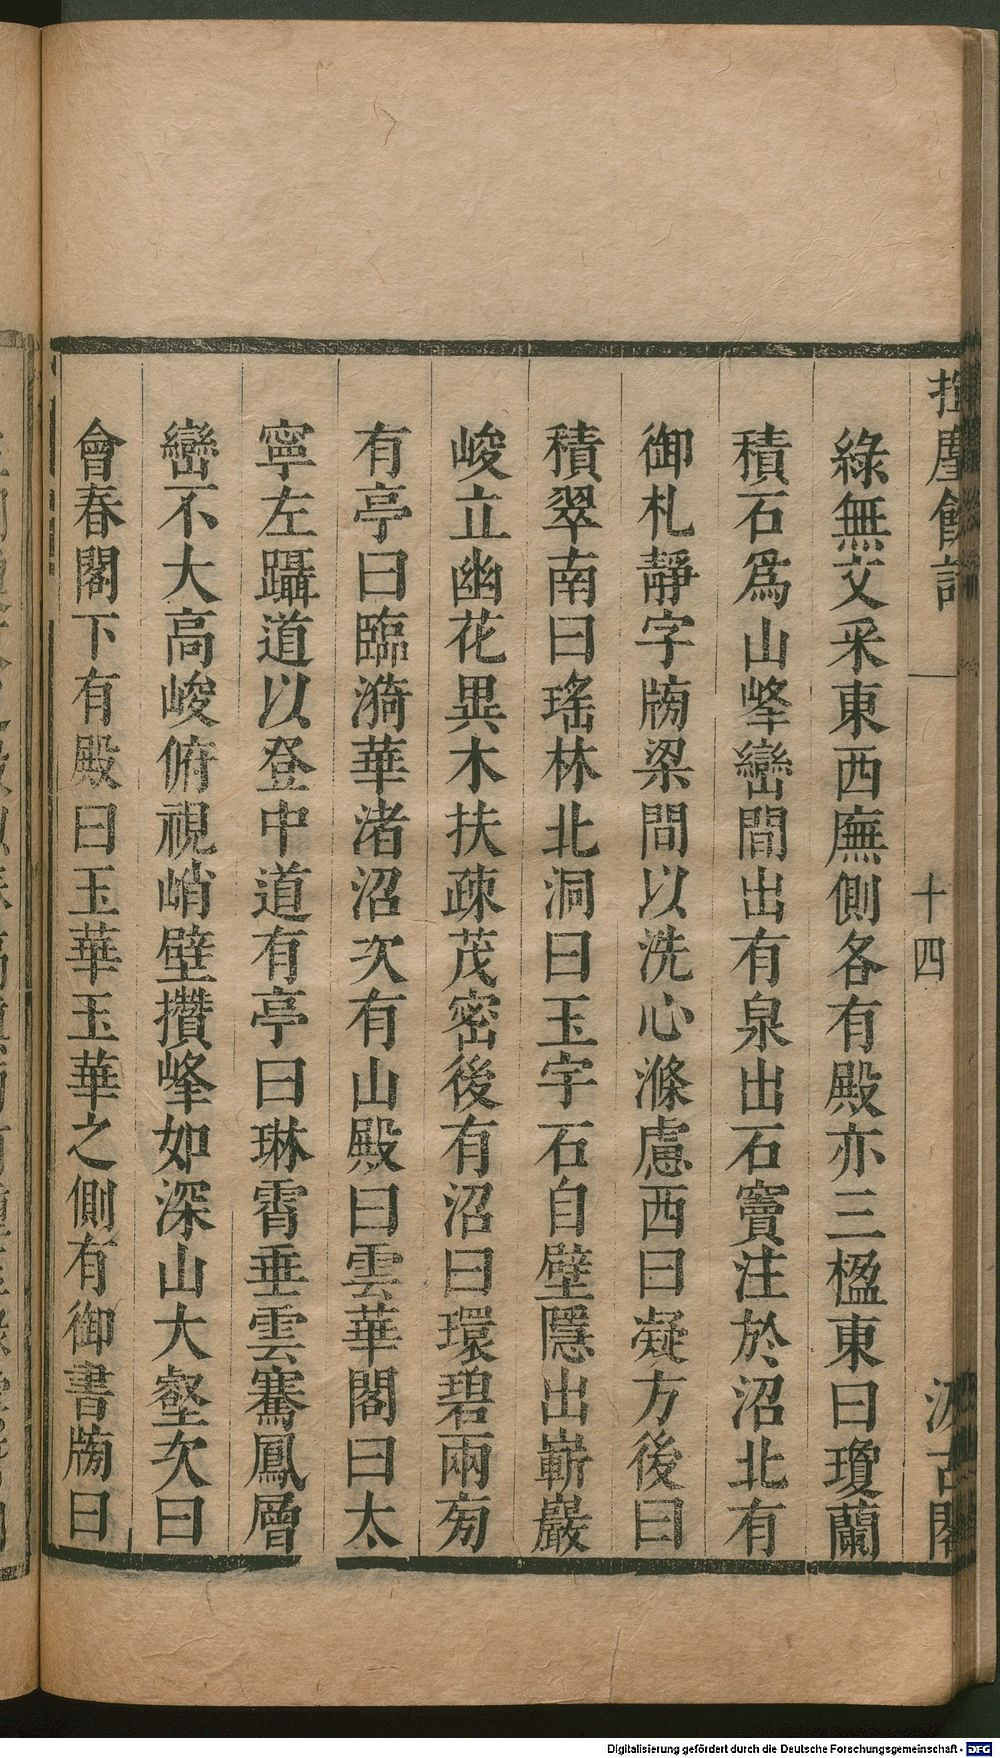 揮麈餘話 一 十四 汲古閣
綠無文采東西廡側各有殿亦三楹東曰瓊蘭
積石爲山峰巒間出有泉出石竇注於沼北有
御札靜字牓梁間以洗心滌慮西曰凝方後曰
積翠南曰瑤林北洞曰玉宇石自壁隱出嶄巖
峻立幽花異木扶疎茂密後有沼曰環碧兩旁
有亭曰臨漪華渚沼次有山殿曰雲華閣曰太
寧左躡道以登中道有亭曰琳霄垂雲騫鳳層
巒不大高峻俯視峭壁攢峰如深山大壑次曰
會春閣下有殿曰玉華玉華之側有御書牓曰
Digitalisierung gefördert durch die Deutsche Forschungsgemeinschaft - DFG